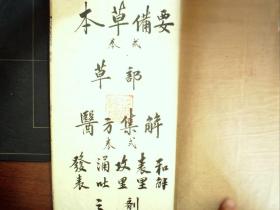 本草備要
卷弍
草部
醫方集解
卷弍
發表
涌吐
攻里
表里
和解
之剂